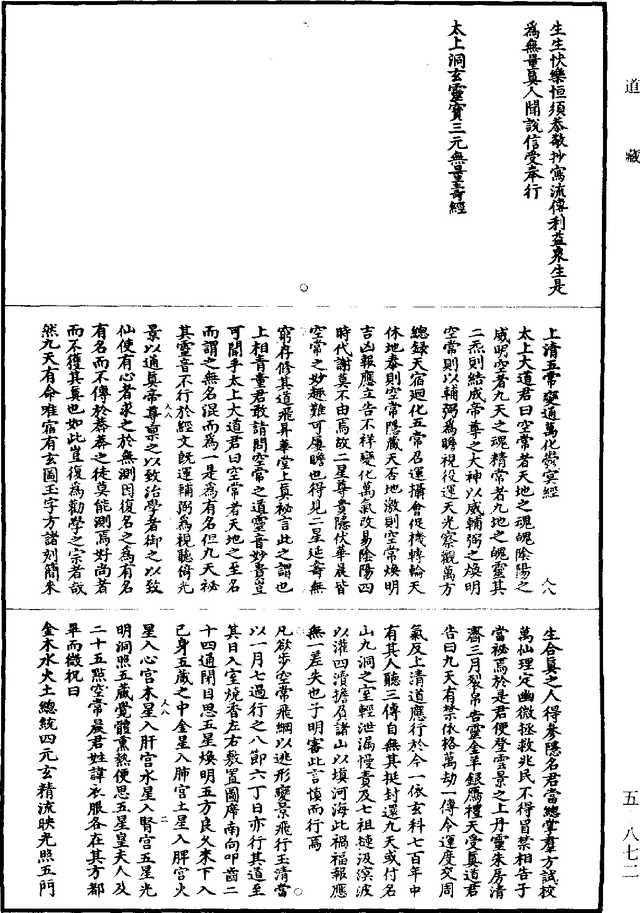 道藏
生生快樂恒須恭敬抄寫流傳利益衆生是
爲無量眞人聞說信受奉行
太上洞玄靈寶三元無量壽經
上清五常變通萬化鬱冥經
太上大道君曰空常者天地之魂魄陰陽之
威明空者九天之魂精常者九地之魄靈其
二炁則結成帝尊之大神以威輔弼之煥明
空常則以輔弼爲瞻視役運天光察觀萬方
總録天宿迴化五常召運攝會促機轉輪天
休地泰則空常隱藏天否地激則空常煥明
吉凶報應立告不祥變化萬氣改易陰陽四
時代謝莫不由焉故二星尊貴隱伏華晨皆
空常之妙趣難可屢瞻也得見二星延壽無
窮存修其道飛昇華堂上眞祕言此之謂也
上相青童君敢請問空常之道靈音妙貴豈
可聞乎太上大道君曰空常者天地之至名
而謂之無名混而爲一是爲有名但九天祕
其靈音不行於經文旣運輔弼爲視聽倚光
景以通眞帝尊稟之以致治學者御之以致
仙使有心者求之於無測因復名之爲有名
有名而不傳於莽莽之徒莫能測焉好尚者
而不獲其眞也如此豈復爲勸學之宗者哉
然九天有命唯宿有玄圖玉字方諸刻簡來
生合眞之人得參隱名君當總掌羣方試校
萬仙理定幽微拯救兆民不得冒禁相告子
當祕焉於是君便登靈景之上丹靈朱房清
齋三月裂帛告靈金羊銀鴈禮天受眞道君
告曰九天有禁依格萬劫一傳令運度交周
氣反上清道應行於今一依玄科七百年中
有其人聽三傳自無其挺封還九天或付名
山九洞之室輕泄漏慢責及七祖槤汲溟波
以灌四瀆擔負諸山以塡河海此禍福報應
無一差失也子明審此言愼而行焉
凡欲步空常飛綱以逃形變景飛行玉清當
以一月七過行之八節六丁日亦行其道至
其日入室燒香左右敷置圖席南向叩齒二
十四通閉目思五星煥明五方良久來下入
己身五藏之中金星入肺宫土星入脾宫火
星入心宫木星入肝宫水星入腎宫五星光
明洞照五藏覺體熏熱便思五星皇夫人及
二十五點空常晨君姓諱衣服各在其方都
畢而微祝曰
金木水火土總統四元玄精流映光照五門
五－八七二